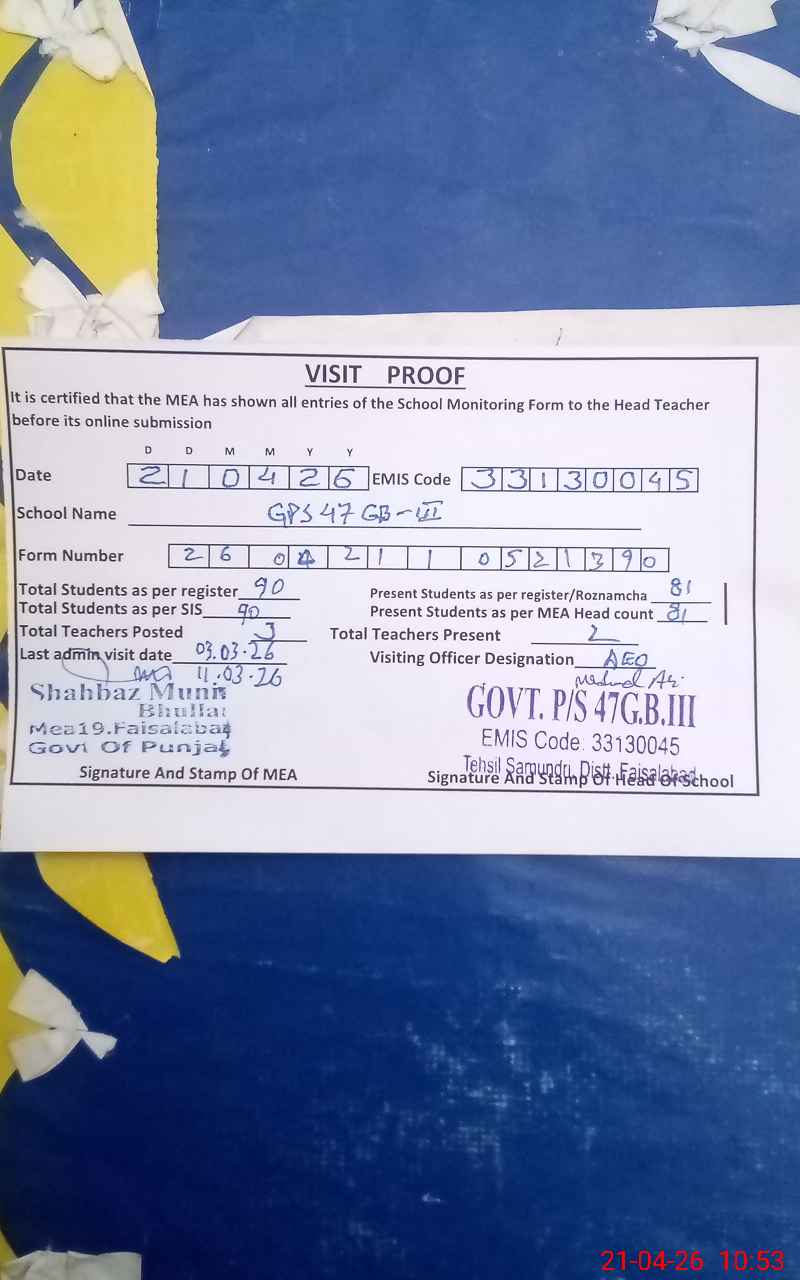 VISIT PROOF
It is certified that the MEA has shown all entries of the School Monitoring Form to the Head Teacher
before its online submission
D D M M Y Y
Date 210426 EMIS Code 33130045
School Name GPS 47 GB-III
Form Number 26 04 211 1 0521390
Total Students as per register 90 Present Students as per register/Roznamcha 81
Total Students as per SIS 90 Present Students as per MEA Head count 81
Total Teachers Posted 3 Total Teachers Present 2
Last admin visit date 03.03.26 Visiting Officer Designation AEO
11.03.26
Shahbaz Munir
Bhullar
Mea19.Faisalabad
Govt Of Punjab
GOVT. P/S 47G.B.III
EMIS Code. 33130045
Tehsil Samundri, Distt. Faisalabad
Signature And Stamp Of MEA Signature And Stamp Of Head Of School
21-04-26 10:53